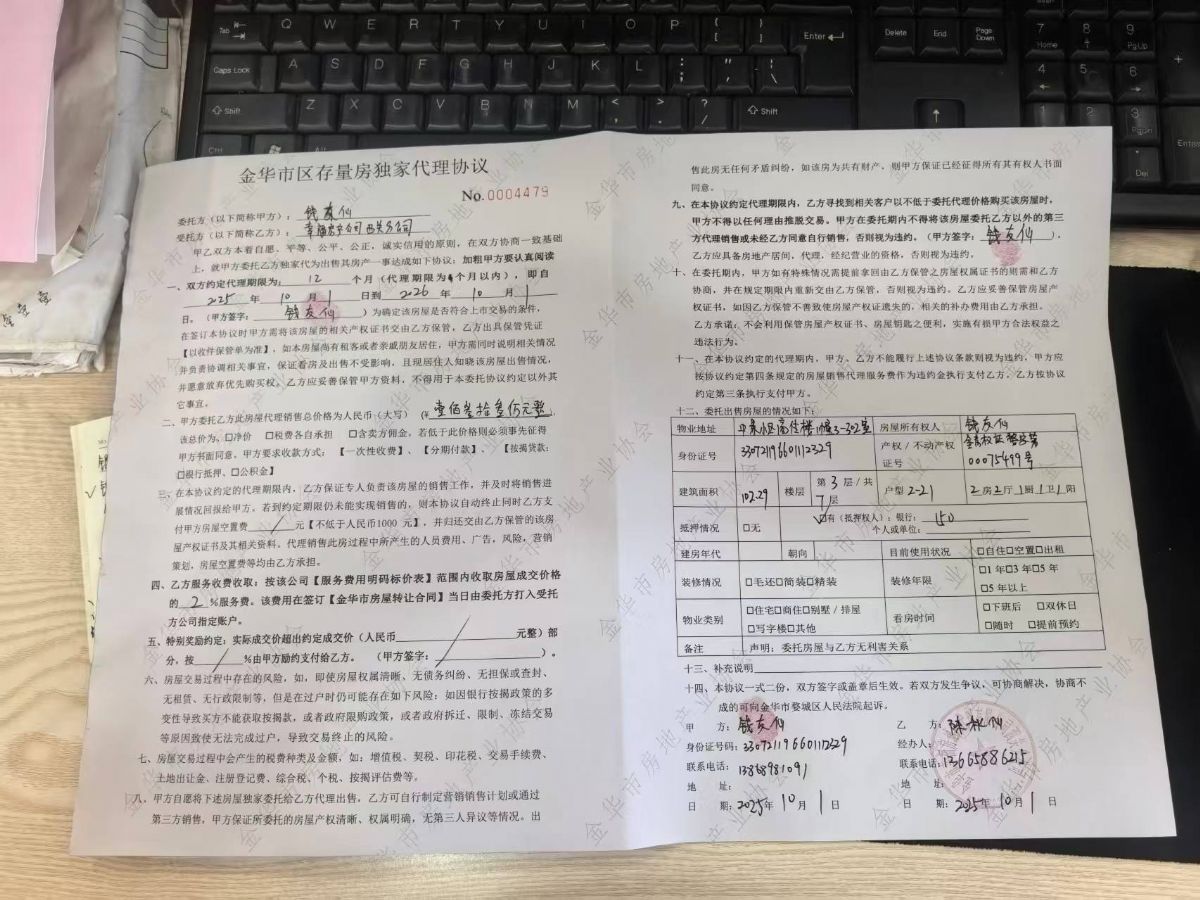 金华市区存量房独家代理协议
No.0004479
委托方（以下简称甲方）：钱友仙
受托方（以下简称乙方）：
甲乙双方本着自愿、平等、公平、公正，诚实信用的原则，在双方协商一致基础
上，就甲方委托乙方独家代为出售其房产一事达成如下协议：加粗甲方要认真阅读
一、双方约定代理期限为：12 个月（代理期限为 个月以内），即自
2025 年 10 月 1 日到 2026 年 10 月 1
日。（甲方签字：钱友仙）为确定该房屋是否符合上市交易的条件，
在签订本协议时甲方需将该房屋的相关产权证书交由乙方保管，乙方出具保管凭证
【以收件保管单为准】，如本房屋尚有租客或者亲戚朋友居住，甲方需同时说明相关情况
并负责协调相关事宜，保证看房及出售不受影响，且现居住人知晓该房屋出售情况，
并愿意放弃优先购买权。乙方应妥善保管甲方资料，不得用于本委托协议约定以外其
它事宜。
二、甲方委托乙方此房屋代理销售总价格为人民币（大写）（¥壹佰叁拾叁仟元整），
该总价为，□净价 □税费各自承担 □含卖方佣金，若低于此价格则必须事先征得
甲方书面同意。甲方要求收款方式：【一次性收费】、【分期付款】、【按揭贷款：
□银行抵押、□公积金】
三、在本协议约定的代理期限内，乙方保证专人负责该房屋的销售工作，并及时将销售进
展情况回报给甲方。若到约定期限仍未能实现销售的，则本协议自动终止同时乙方支
付甲方房屋空置费 / 元【不低于人民币1000 元】，并归还交由乙方保管的该房
屋产权证书及其相关资料。代理销售此房过程中所产生的人员费用、广告，风险，营销
策划，房屋空置费等均由乙方承担。
四、乙方服务收费收取：按该公司【服务费用明码标价表】范围内收取房屋成交价格
的 2 %服务费。该费用在签订【金华市房屋转让合同】当日由委托方打入受托
方公司指定账户。
五、特别奖励约定：实际成交价超出约定成交价（人民币 / 元整）部
分，按 / %由甲方励约支付给乙方。（甲方签字： / ）。
六、房屋交易过程中存在的风险，如，即使房屋权属清晰、无债务纠纷、无担保或查封、
无租赁、无行政限制等，但是在过户时仍可能存在如下风险：如因银行按揭政策的多
变性导致买方不能获取按揭款，或者政府限购政策，或者政府拆迁、限制、冻结交易
等原因致使无法完成过户，导致交易终止的风险。
七、房屋交易过程中会产生的税费种类及金额，如：增值税、契税、印花税、交易手续费、
土地出让金、注册登记费、综合税、个税、按揭评估费等。
八、甲方自愿将下述房屋独家委托给乙方代理出售，乙方可自行制定营销销售计划或通过
第三方销售，甲方保证所委托的房屋产权清晰、权属明确，无第三人异议等情况。出
售此房无任何矛盾纠纷，如该房为共有财产，则甲方保证已经征得所有其有权人书面
同意。
九、在本协议约定代理期限内，乙方寻找到相关客户以不低于委托代理价格购买该房屋时，
甲方不得以任何理由推脱交易。甲方在委托期内不得将该房屋委托乙方以外的第三
方代理销售或未经乙方同意自行销售，否则视为违约。（甲方签字：钱友仙），
乙方应具备房地产居间，代理，经纪营业的资格，否则视为违约。
十、在委托期内，甲方如有特殊情况需提前拿回由乙方保管之房屋权属证书的则需和乙方
协商，并在规定期限内重新交由乙方保管，否则视为违约。乙方应妥善保管房屋产
权证书，如因乙方保管不善致使房屋产权证遗失的，相关的补办费用由乙方承担。
乙方承诺：不会利用保管房屋产权证书、房屋钥匙之便利，实施有损甲方合法权益之
违法行为。
十一、在本协议约定的代理期内，甲方、乙方不能履行上述协议条款则视为违约，甲方应
按协议约定第四条规定的房屋销售代理服务费作为违约金执行支付乙方。乙方按协议
约定第三条执行支付甲方。
十二、委托出售房屋的情况如下：
物业地址 3-302室 房屋所有权人 钱友仙
身份证号 330721196601112329 产权/不动产权证号 00075499号
建筑面积 102.29 楼层 第 3 层/共 7 层 户型 2-21 2 房 2 厅 1 厨 1 卫 1 阳
抵押情况 □无 ☑有（抵押权人）：银行：150
个人或单位：
建房年代 朝向 目前使用状况 □自住□空置□出租
装修情况 □毛还□简装□精装 装修年限 □1 年□3 年□5 年
□5 年以上
物业类别 □住宅□商住□别墅/排屋
□写字楼□其他 看房时间 □下班后 □双休日
□随时 □提前预约
备注 声明：委托房屋与乙方无利害关系
十三、补充说明
十四、本协议一式二份，双方签字或盖章后生效。若双方发生争议，可协商解决，协商不
成的可向金华市婺城区人民法院起诉。
甲 方：钱友仙 乙 方：陈 仙
身份证号码：330721196601112329 经办人：
联系电话：13868981091 联系电话：13665886215
地 址： 地 址：
日 期：2025年 10 月 1 日 日 期：2025年 10 月 1 日